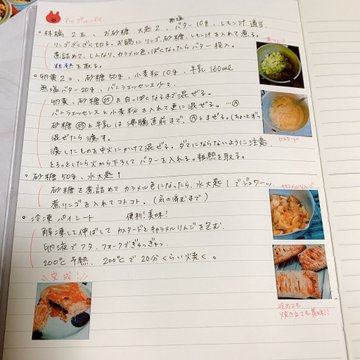 アップルパイ
○林檎 2コ、お砂糖 大匙2、バター 10g、レモン汁 適当
りんござくざく切る。お鍋にりんご、砂糖、レモン汁を入れて煮る。
煮詰めて、しんなり、カラメル色っぽくなったらバター投入。
粗熱を取る。
○卵黄 2コ、砂糖 50g、小麦粉 10g、牛乳 160ml
無塩バター 20g、バニラエッセンス少々
卵黄、砂糖 を白っぽくなるまで混ぜる。
バニラエッセンスと小麦粉を入れて更に混ぜる。―Ⓐ
砂糖 と牛乳は沸騰直前まで。Ⓐとまぜる。ちょっとずつ
混ぜたら濾す。
濾したものを中火にかけて混ぜる。ダマにならないように注意
とろっとしたら火から下ろしてバターを入れる。粗熱を取る。
○砂糖 50g、水大匙1
砂糖を煮詰めてカラメル色になったら、水大匙1でジュワー。
煮りんごを入れてコトコト。
○冷凍パイシート 便利!美味!
解凍して伸ばしてカスタードとキャラメルりんごを包む。
卵液でフタ、フォークでぎゅっぎゅっ。
200℃予熱、200℃で20分くらい焼く。
完成!!
カスタード
キャラメルりんご
焼き立ても美味!!